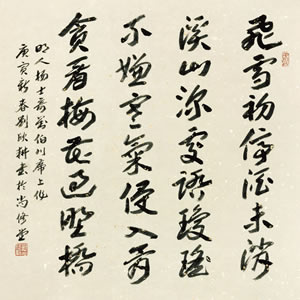 飛雪初停酒未消
溪山深處踏瓊瑤
不嫌寒氣侵入骨
貪看梅花過野橋
明人楊士奇劉伯川席上作
庚寅新春劉欣耕書於尚修堂